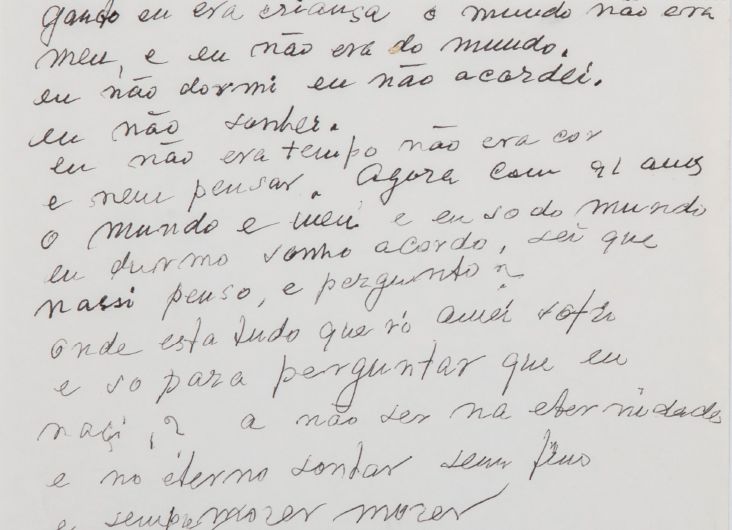 gando eu era criança o mundo não era
meu, e eu não era do mundo.
eu não dormi eu não acordei.
eu não sonhei.
eu não era tempo não era cor
e nem pensar. Agora com 91 anos
o mundo e meu e eu so do mundo
eu durmo sonho acordo, sei que
nassi penso, e pergunto?
onde esta tudo que vi amei sofri
e so para perguntar que eu
naçi,? a não ser na eternidades
e no éterno sontar sem fino
e sempre morer morer